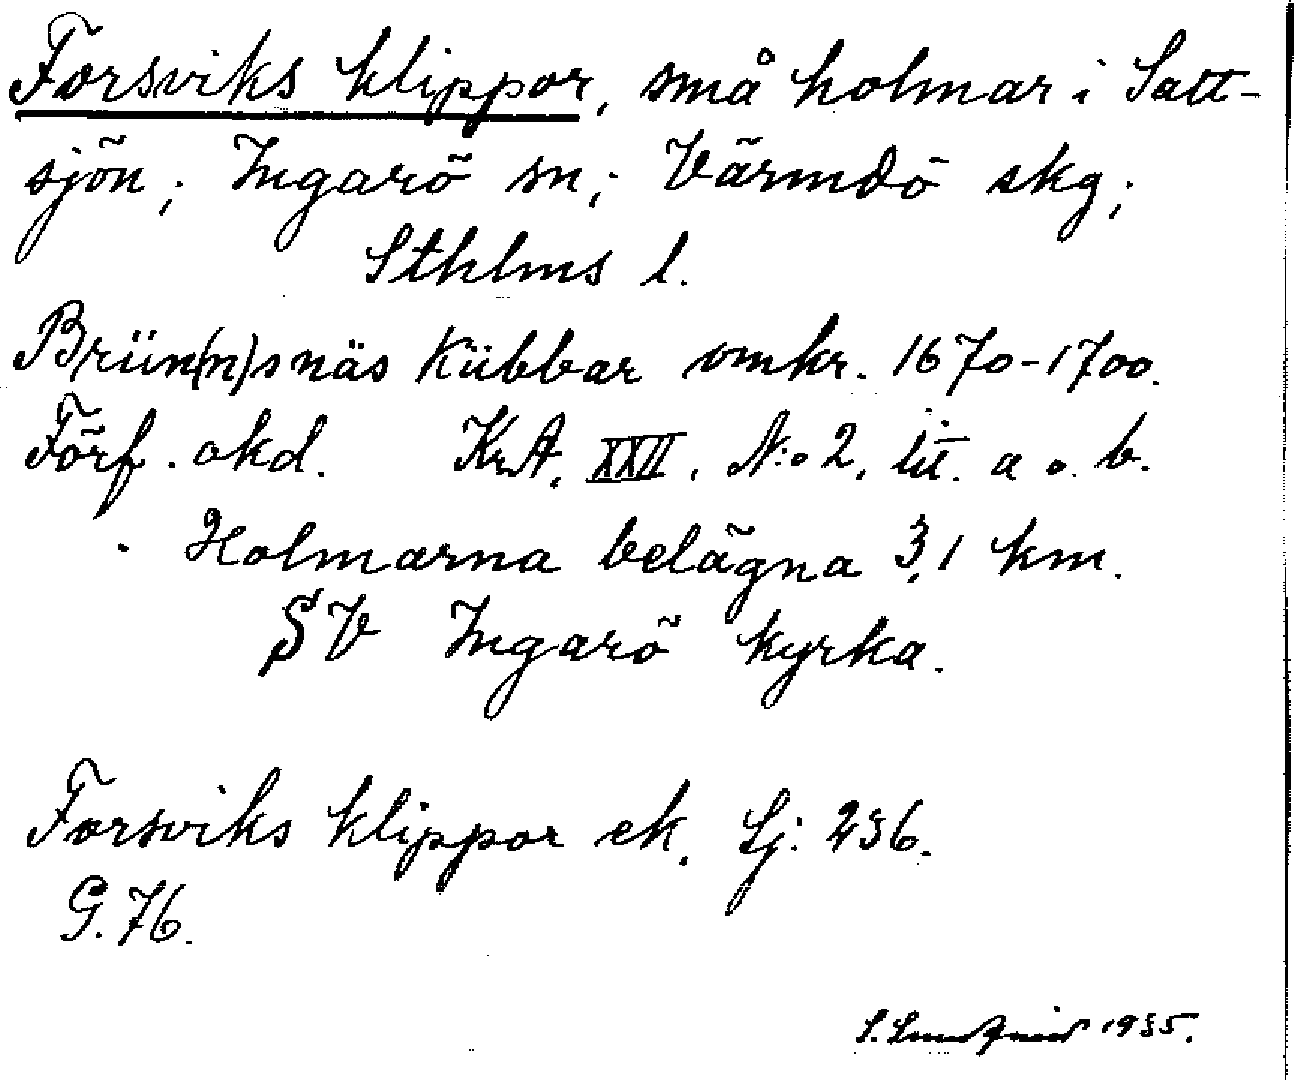 Forsviks klippor, små holmar i Satt-
sjön; Ingarö sn; Värmdö skg;
Sthlms l.
Brün(n)snäs Kübbar omkr. 1670-1700.
Förf. okd. KrA, XXII, N:o 2, lit. a o. b.
Holmarna belägna 3,1 km.
SV Ingarö kyrka.
Forsviks klippor ek. Lj: 236.
G. 76.
S. Lundqvist 1935.